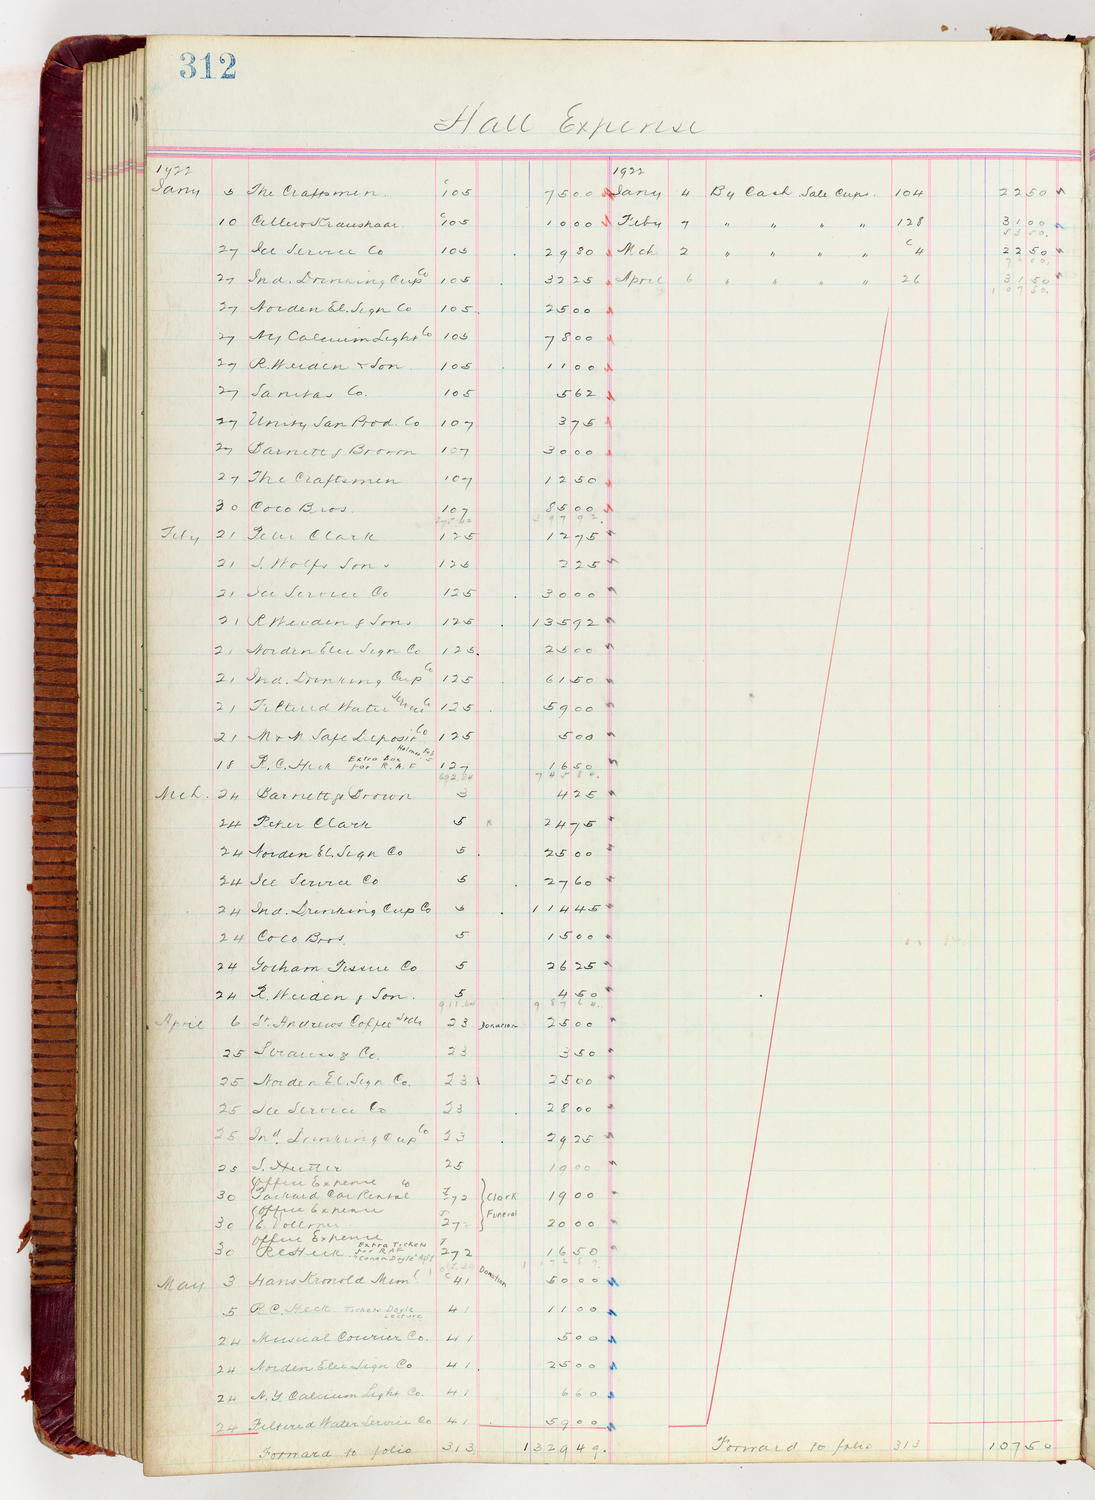 312
Hall Expense
1922
Jany 5 The Craftsmen. C 105 7500
10 Kraushaar C 105 1000
27 Ice Service Co 105 2980
27 Ind. Drinking Cup Co 105 3225
27 Norden El. Sign Co 105 2500
27 NY Calcium Light Co 105 7800
27 R. Weiden & Son. 105 1100
27 Sanitas Co. 105 562
27 Unity San Prod. Co 107 375
27 Barnett & Brown 107 3000
27 The Craftsmen 107 1250
30 Coco Bros. 107 8500
39792.
Feby 21 Peter Clark 125 1275
21 S. Wolfs Sons 125 225
21 Ice Service Co 125 3000
21 R Weiden & Sons 125 13592
21 Norden Elec Sign Co 125 2500
21 Ind. Drinking Cup Co 125 6150
21 Filtered Water Service Co 125 5900
21 M & M Safe Deposit Co 125 500
18 R. C. Heck Extra Box for R.A.F. Holmes Feb 5 127 1650
692.84 74584.
Mch. 24 Barnett & Brown 3 425
24 Peter Clark 5 2475
24 Norden El. Sign Co 5 2500
24 Ice Service Co 5 2760
24 Ind. Drinking Cup Co 5 11445
24 Coco Bros. 5 1500
24 Gotham Tissue Co 5 2625
24 R. Weiden & Son. 5 450
911.64 98764.
April 6 St. Andrews Coffee Stds 23 Donation 2500
25 Strauss & Co. 23 350
25 Norden El. Sign Co. 23 2500
25 Ice Service Co 23 2800
25 Ind. Drinking Cup Co 23 2925
25 S. Hutter 25 1900
Office Expense
30 Packard Car Rental Co J 272 Clark 1900
Office Expense Funeral
30 E. Vollmer J 272 2000
Office Expense
30 RC Heck Extra Tickets for RAF "Conan Doyle" J 272 1650
May 3 Hans Kronold Mem'l C 41 Donation 5000
5 R. C. Heck Tickets Doyle Lecture 41 1100
24 Musical Courier Co. 41 500
24 Norden Elec Sign Co 41 2500
24 N. Y. Calcium Light Co. 41 660
24 Filtered Water Service Co 41 5900
Forward to folio 313 132949.
1922
Jany 4 By Cash Sale Cups. 104 2250
Feby 7 " " " " 128 3100
5350.
Mch 2 " " " " C 4 2250
7600.
April 6 " " " " 26 3150
10750.
Forward to folio 313 10750